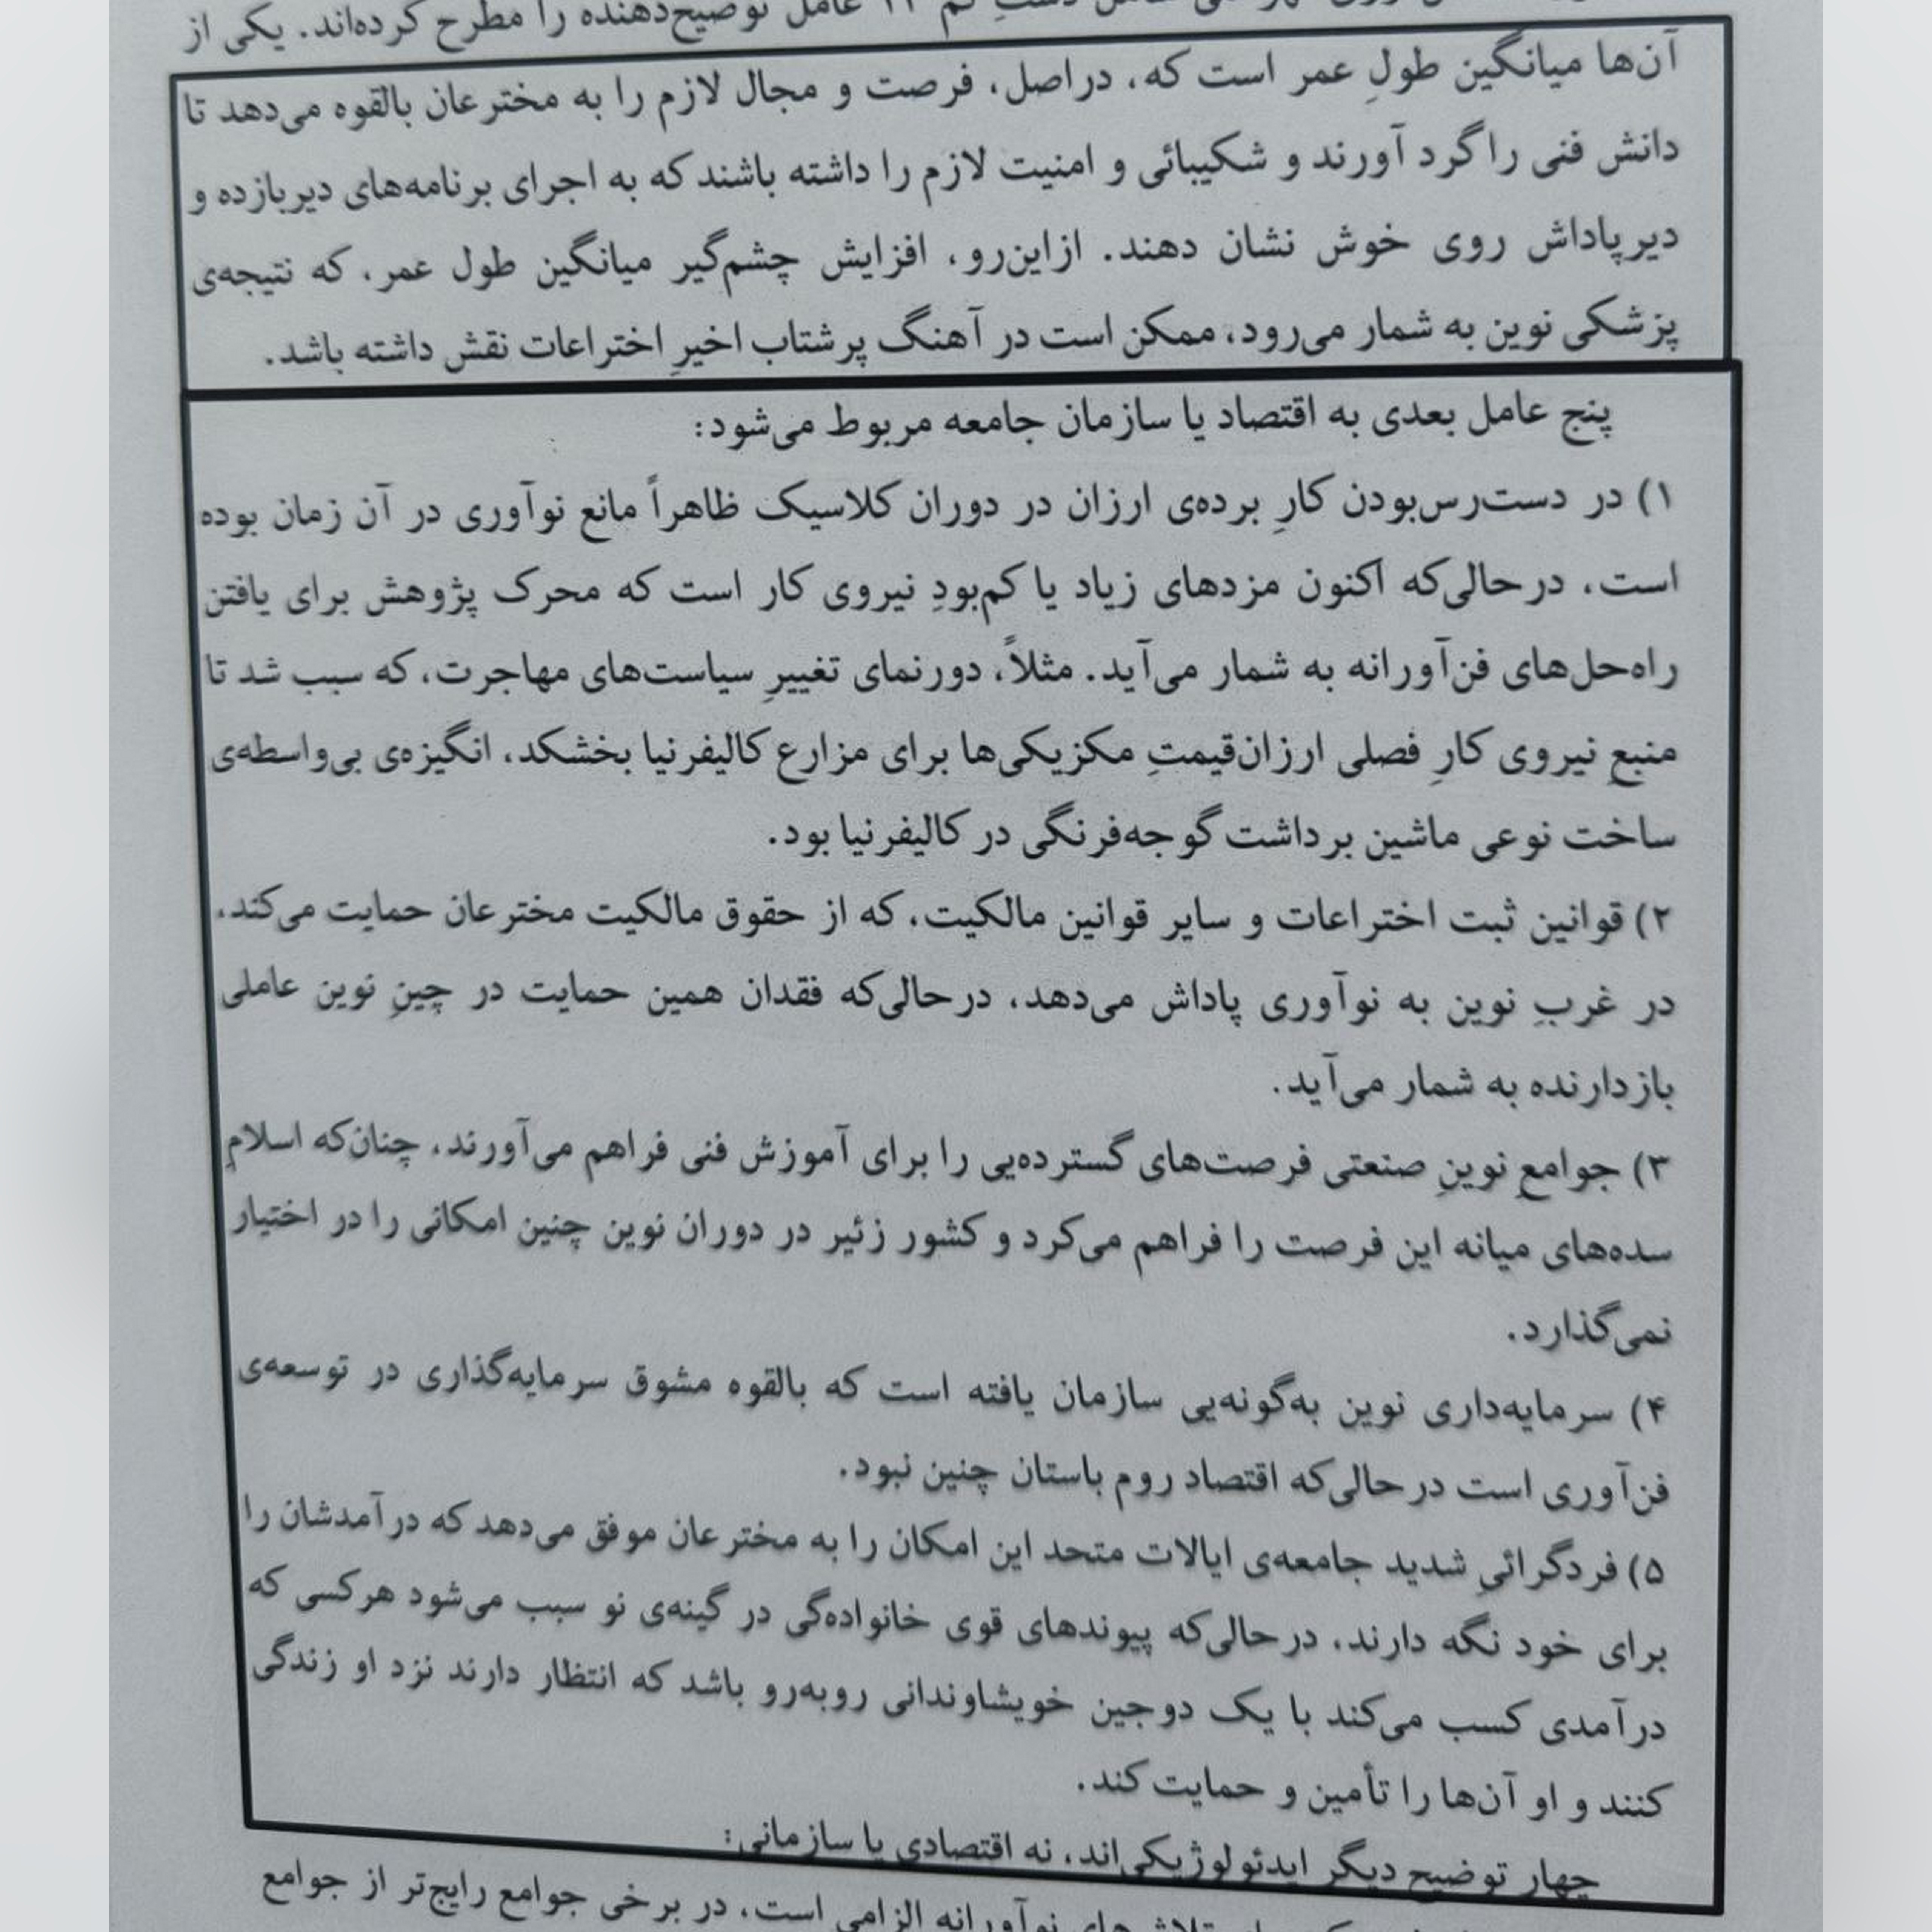 عامل توضیح‌دهنده را مطرح کرده‌اند. یکی از
آن‌ها میانگین طولِ عمر است که، دراصل، فرصت و مجال لازم را به مخترعان بالقوه می‌دهد تا
دانش فنی را گرد آورند و شکیبائی و امنیت لازم را داشته باشند که به اجرای برنامه‌های دیربازده و
دیرپاداش روی خوش نشان دهند. ازاین‌رو، افزایش چشم‌گیر میانگین طول عمر، که نتیجه‌ی
پزشکی نوین به شمار می‌رود، ممکن است در آهنگ پرشتاب اخیرِ اختراعات نقش داشته باشد.
پنج عامل بعدی به اقتصاد یا سازمان جامعه مربوط می‌شود:
۱) در دست‌رس‌بودن کارِ برده‌ی ارزان در دوران کلاسیک ظاهراً مانع نوآوری در آن زمان بوده
است، درحالی‌که اکنون مزدهای زیاد یا کم‌بودِ نیروی کار است که محرک پژوهش برای یافتن
راه‌حل‌های فن‌آورانه به شمار می‌آید. مثلاً، دورنمای تغییرِ سیاست‌های مهاجرت، که سبب شد تا
منبعِ نیروی کارِ فصلی ارزان‌قیمتِ مکزیکی‌ها برای مزارع کالیفرنیا بخشکد، انگیزه‌ی بی‌واسطه‌ی
ساخت نوعی ماشین برداشت گوجه‌فرنگی در کالیفرنیا بود.
۲) قوانین ثبت اختراعات و سایر قوانین مالکیت، که از حقوق مالکیت مخترعان حمایت می‌کند،
در غربِ نوین به نوآوری پاداش می‌دهد، درحالی‌که فقدان همین حمایت در چینِ نوین عاملی
بازدارنده به شمار می‌آید.
۳) جوامعِ نوینِ صنعتی فرصت‌های گسترده‌یی را برای آموزش فنی فراهم می‌آورند، چنان‌که اسلامِ
سده‌های میانه این فرصت را فراهم می‌کرد و کشور زئیر در دوران نوین چنین امکانی را در اختیار
نمی‌گذارد.
۴) سرمایه‌داری نوین به‌گونه‌یی سازمان یافته است که بالقوه مشوق سرمایه‌گذاری در توسعه‌ی
فن‌آوری است درحالی‌که اقتصاد روم باستان چنین نبود.
۵) فردگرائیِ شدید جامعه‌ی ایالات متحد این امکان را به مخترعان موفق می‌دهد که درآمدشان را
برای خود نگه دارند، درحالی‌که پیوندهای قوی خانواده‌گی در گینه‌ی نو سبب می‌شود هرکسی که
درآمدی کسب می‌کند با یک دوجین خویشاوندانی روبه‌رو باشد که انتظار دارند نزد او زندگی
کنند و او آن‌ها را تأمین و حمایت کند.
چهار توضیح دیگر ایدئولوژیکی‌اند، نه اقتصادی یا سازمانی:
نوآورانه الزامی است، در برخی جوامع رایج‌تر از جوامع